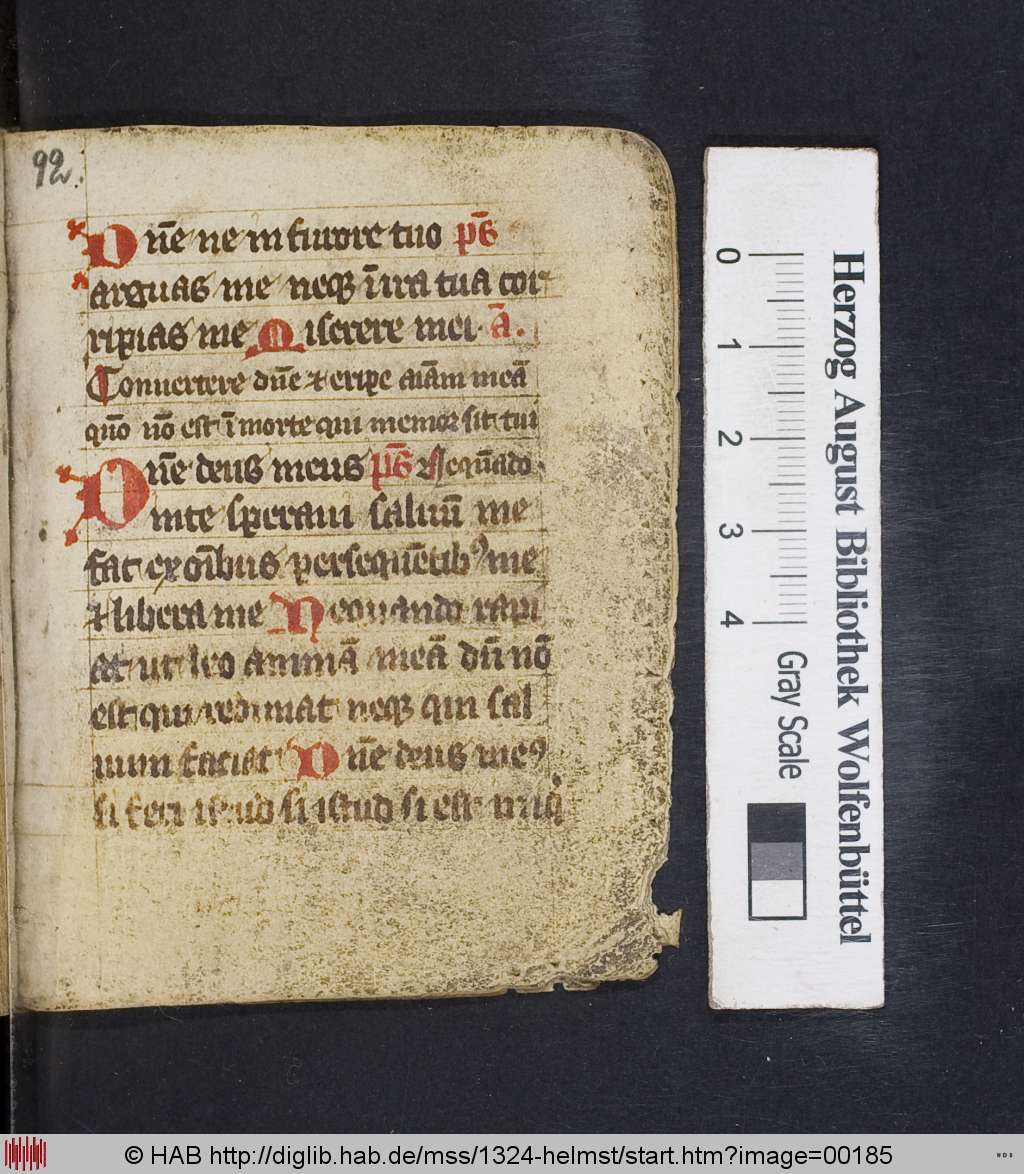 92.
Dn̄e ne in furore tuo ps̄
arguas me neqꝫ īira tua cor
ripias me Miserere mei ā.
Conuertere dn̄e ⁊ eripe aīam meā
qm̄o nō est ī morte qui memor sit tui
Dn̄e deus meus ps̄ Nequādo
inte speraui saluū me
fac ex oīnibus persequētibꝰ me
⁊ libera me Nequando rapi
at ut leo animā meā dū nō
est qui redimat neqꝫ qui sal
uum faciat Dn̄e deus meꝰ
si feci istud si istud si est iniq̄
0 1 2 3 4
Herzog August Bibliothek Wolfenbüttel
Gray Scale
© HAB http://diglib.hab.de/mss/1324-helmst/start.htm?image=00185